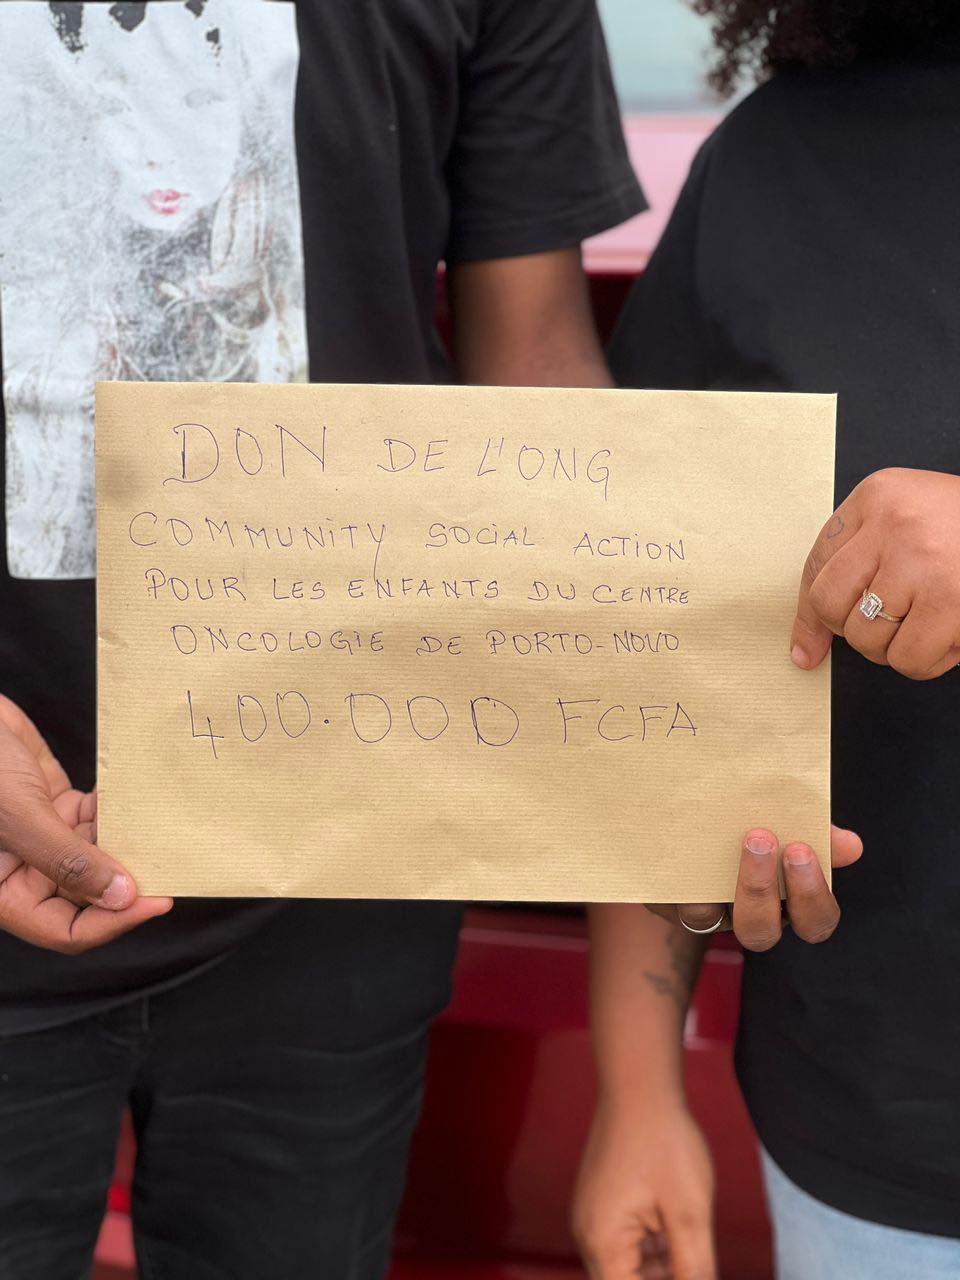 DON DE L'ONG
COMMUNITY SOCIAL ACTION
POUR LES ENFANTS DU CENTRE
ONCOLOGIE DE PORTO-NOVO
400.000 FCFA